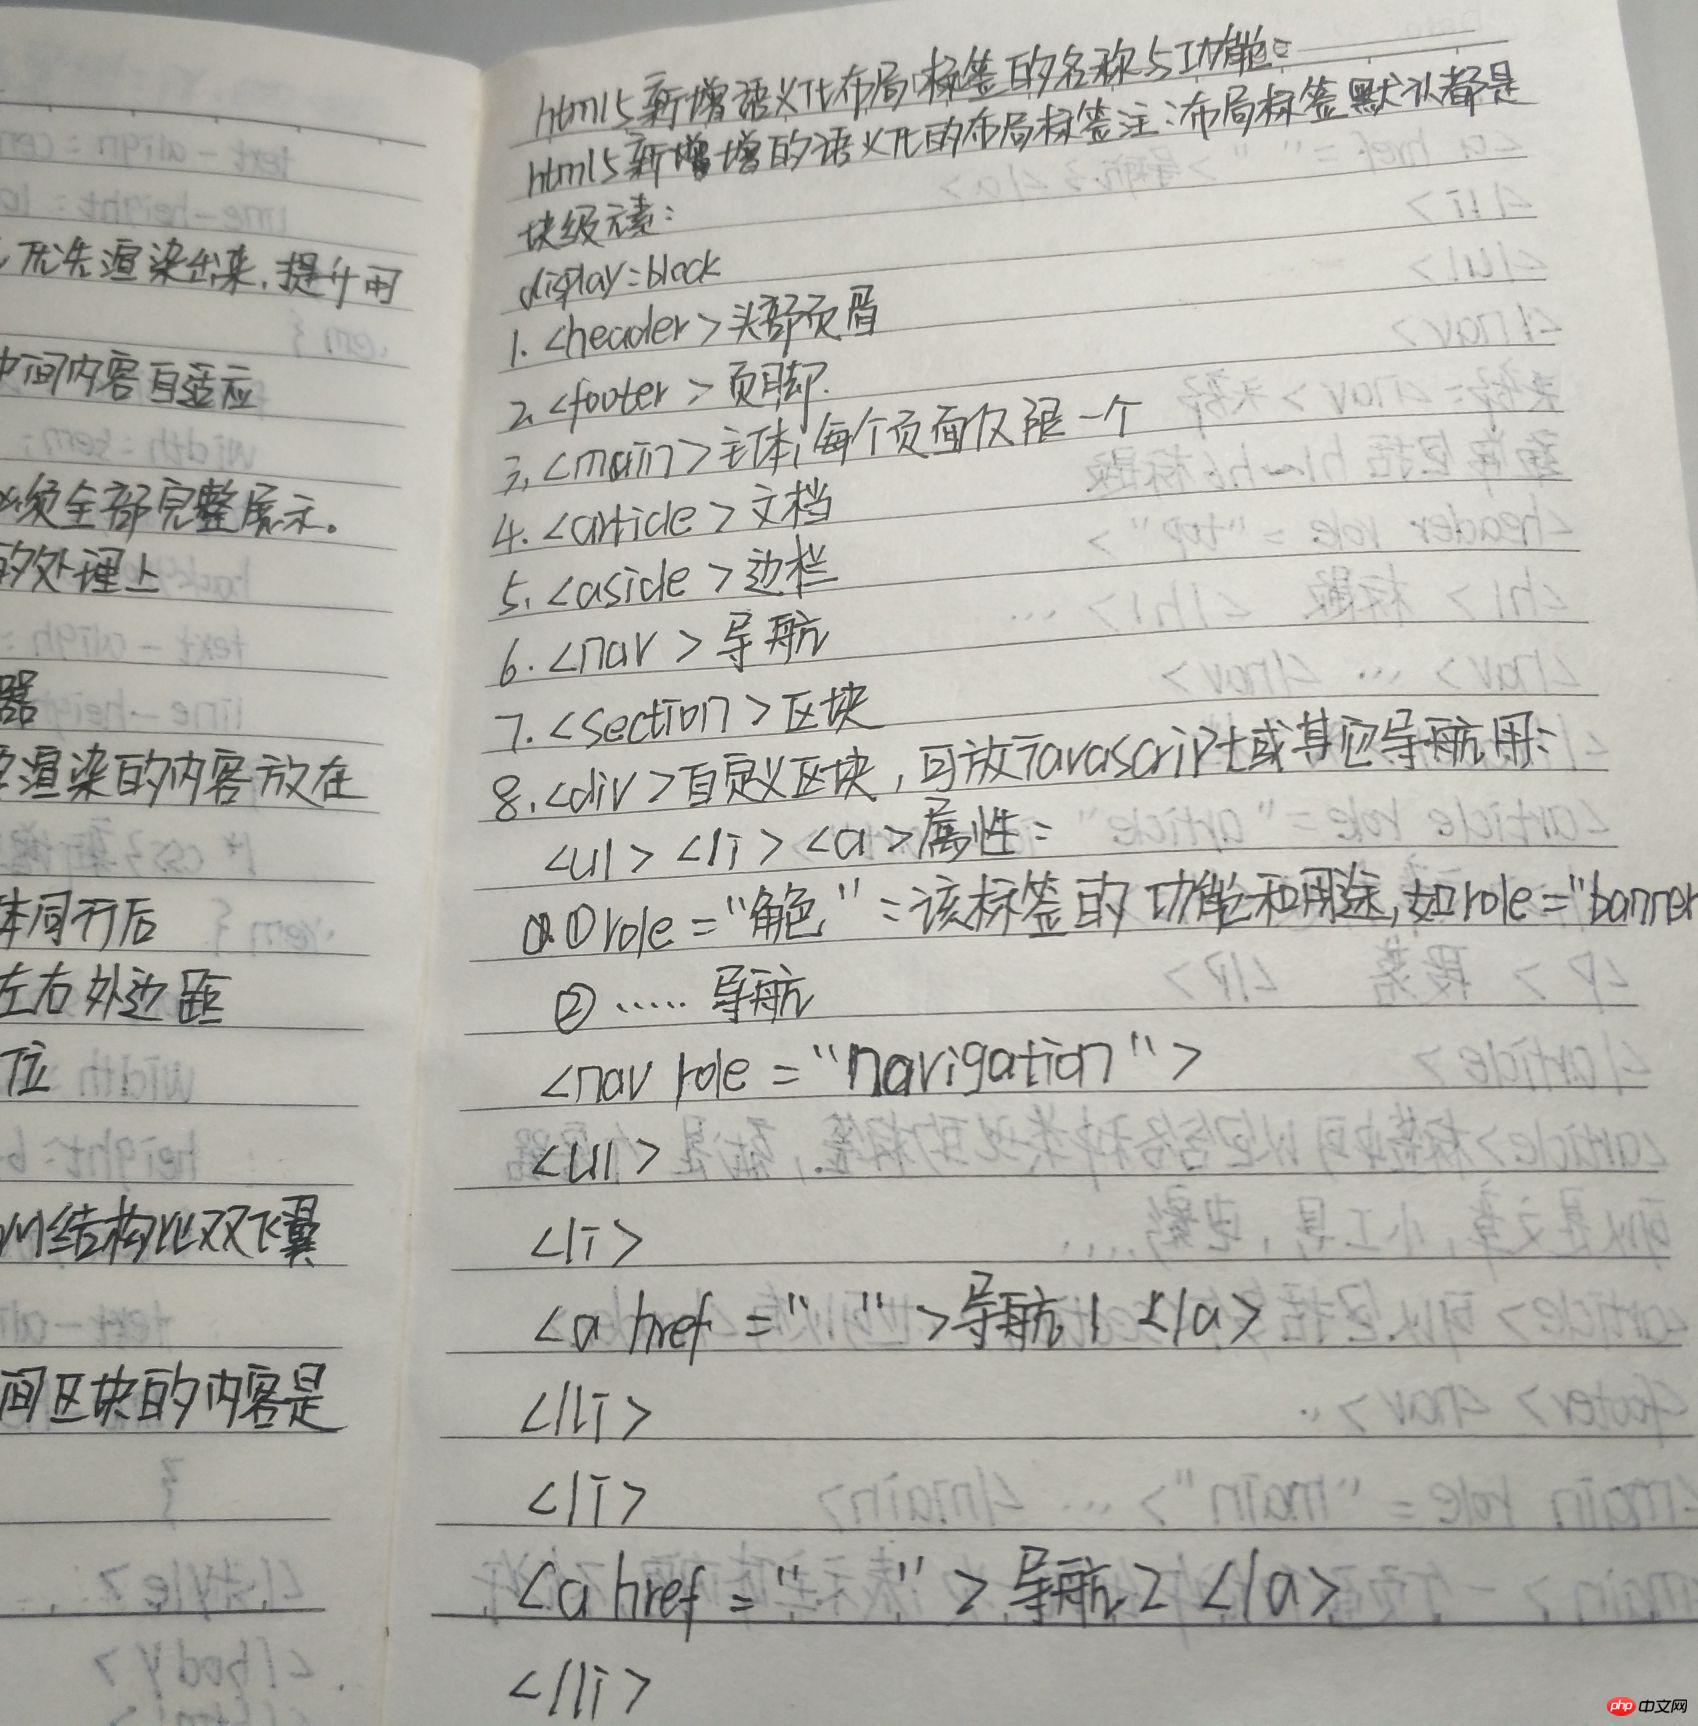 优先渲染出来,提升用
中间内容自适应
必须全部完整展示。
的处理上
器
渲染的内容放在
体同行后
左右外边距
位
M结构比双飞翼
间区块的内容是
html5新增语义化布局标签的名称与功能:
html5新增增的语义化的布局标签注:布局标签默认都是
块级元素:
display:block
1.<header>头部页眉
2.<footer>页脚.
3.<main>主体,每个页面仅限一个
4.<article>文档
5.<aside>边栏
6.<nav>导航
7.<section>区块
8.<div>自定义区块,可放Javascript或其它导航用:
<ul><li><a>属性:
①role="角色":该标签的功能和用途,如role="banner
②……导航
<nav role="navigation">
<ul>
<li>
<a href=" ">导航1</a>
</li>
<li>
<a href=" ">导航2</a>
</li>
php中文网